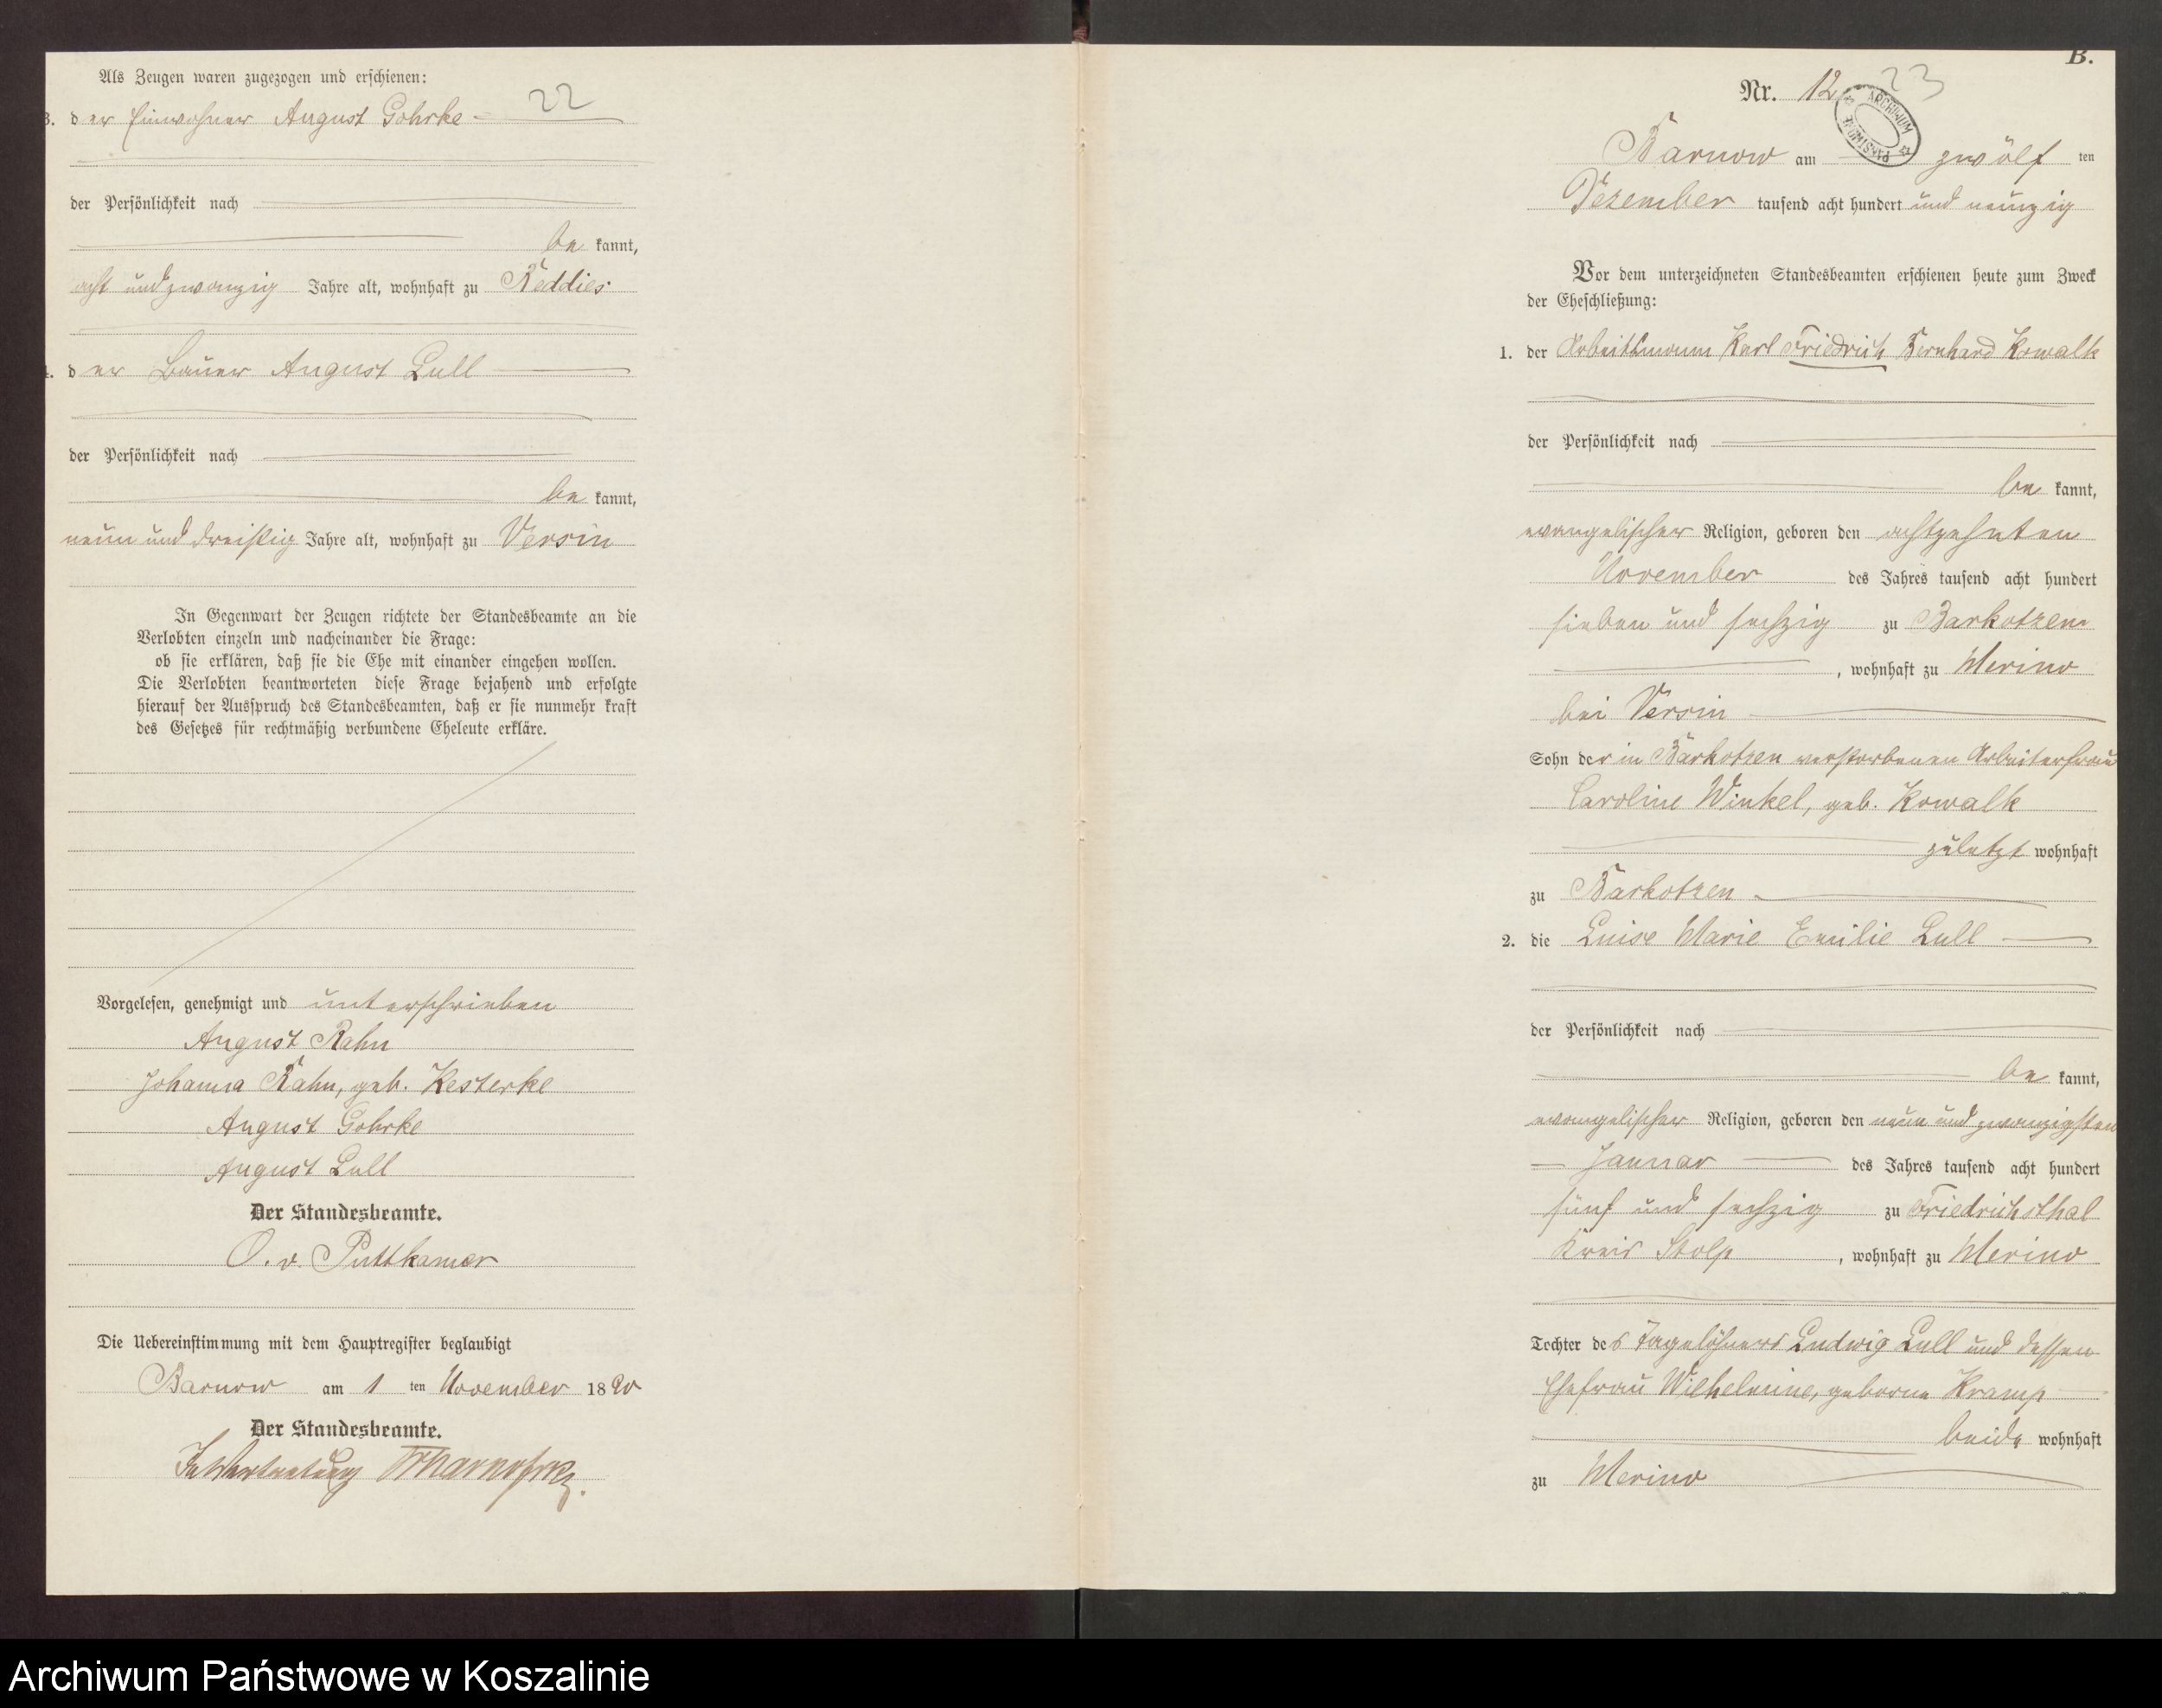 Als Zeugen waren zugezogen und erschienen:
22
3. der Einwohner August Gohrke
der Persönlichkeit nach
be kannt,
acht und zwanzig Jahre alt, wohnhaft zu Reddies
4. der Bauer August Lull
der Persönlichkeit nach
be kannt,
neun und dreißig Jahre alt, wohnhaft zu Versin
In Gegenwart der Zeugen richtete der Standesbeamte an die
Verlobten einzeln und nacheinander die Frage:
ob sie erklären, daß sie die Ehe mit einander eingehen wollen.
Die Verlobten beantworteten diese Frage bejahend und erfolgte
hierauf der Ausspruch des Standesbeamten, daß er sie nunmehr kraft
des Gesetzes für rechtmäßig verbundene Eheleute erkläre.
Vorgelesen, genehmigt und unterschrieben
August Rahn
Johanna Rahn, geb. Kesterke
August Gohrke
August Lull
Der Standesbeamte.
O. v. Puttkamer
Die Uebereinstimmung mit dem Hauptregister beglaubigt
Barnow am 1 ten November 1890
Der Standesbeamte.
In Vertretung
B.
Nr. 12
23
ARCHIWUM PAŃSTWOWE
Barnow am zwölf ten
Dezember tausend acht hundert und neunzig
Vor dem unterzeichneten Standesbeamten erschienen heute zum Zweck
der Eheschließung:
1. der Arbeitsmann Karl Friedrich Bernhard Kowalk
der Persönlichkeit nach
be kannt,
evangelischer Religion, geboren den achtzehnten
November des Jahres tausend acht hundert
sieben und sechzig zu Barkotzen
, wohnhaft zu Merino
bei Versin
Sohn der in Barkotzen verstorbenen Arbeiterfrau
Caroline Winkel, geb. Kowalk
zuletzt wohnhaft
zu Barkotzen
2. die Luise Marie Emilie Lull
der Persönlichkeit nach
be kannt,
evangelischer Religion, geboren den neun und zwanzigsten
Januar des Jahres tausend acht hundert
fünf und sechzig zu Friedrichsthal
Kreis Stolp, wohnhaft zu Merino
Tochter des Tagelöhners Ludwig Lull und dessen
Ehefrau Wilhelmine, geborne Kramp
beide wohnhaft
zu Merino
Archiwum Państwowe w Koszalinie